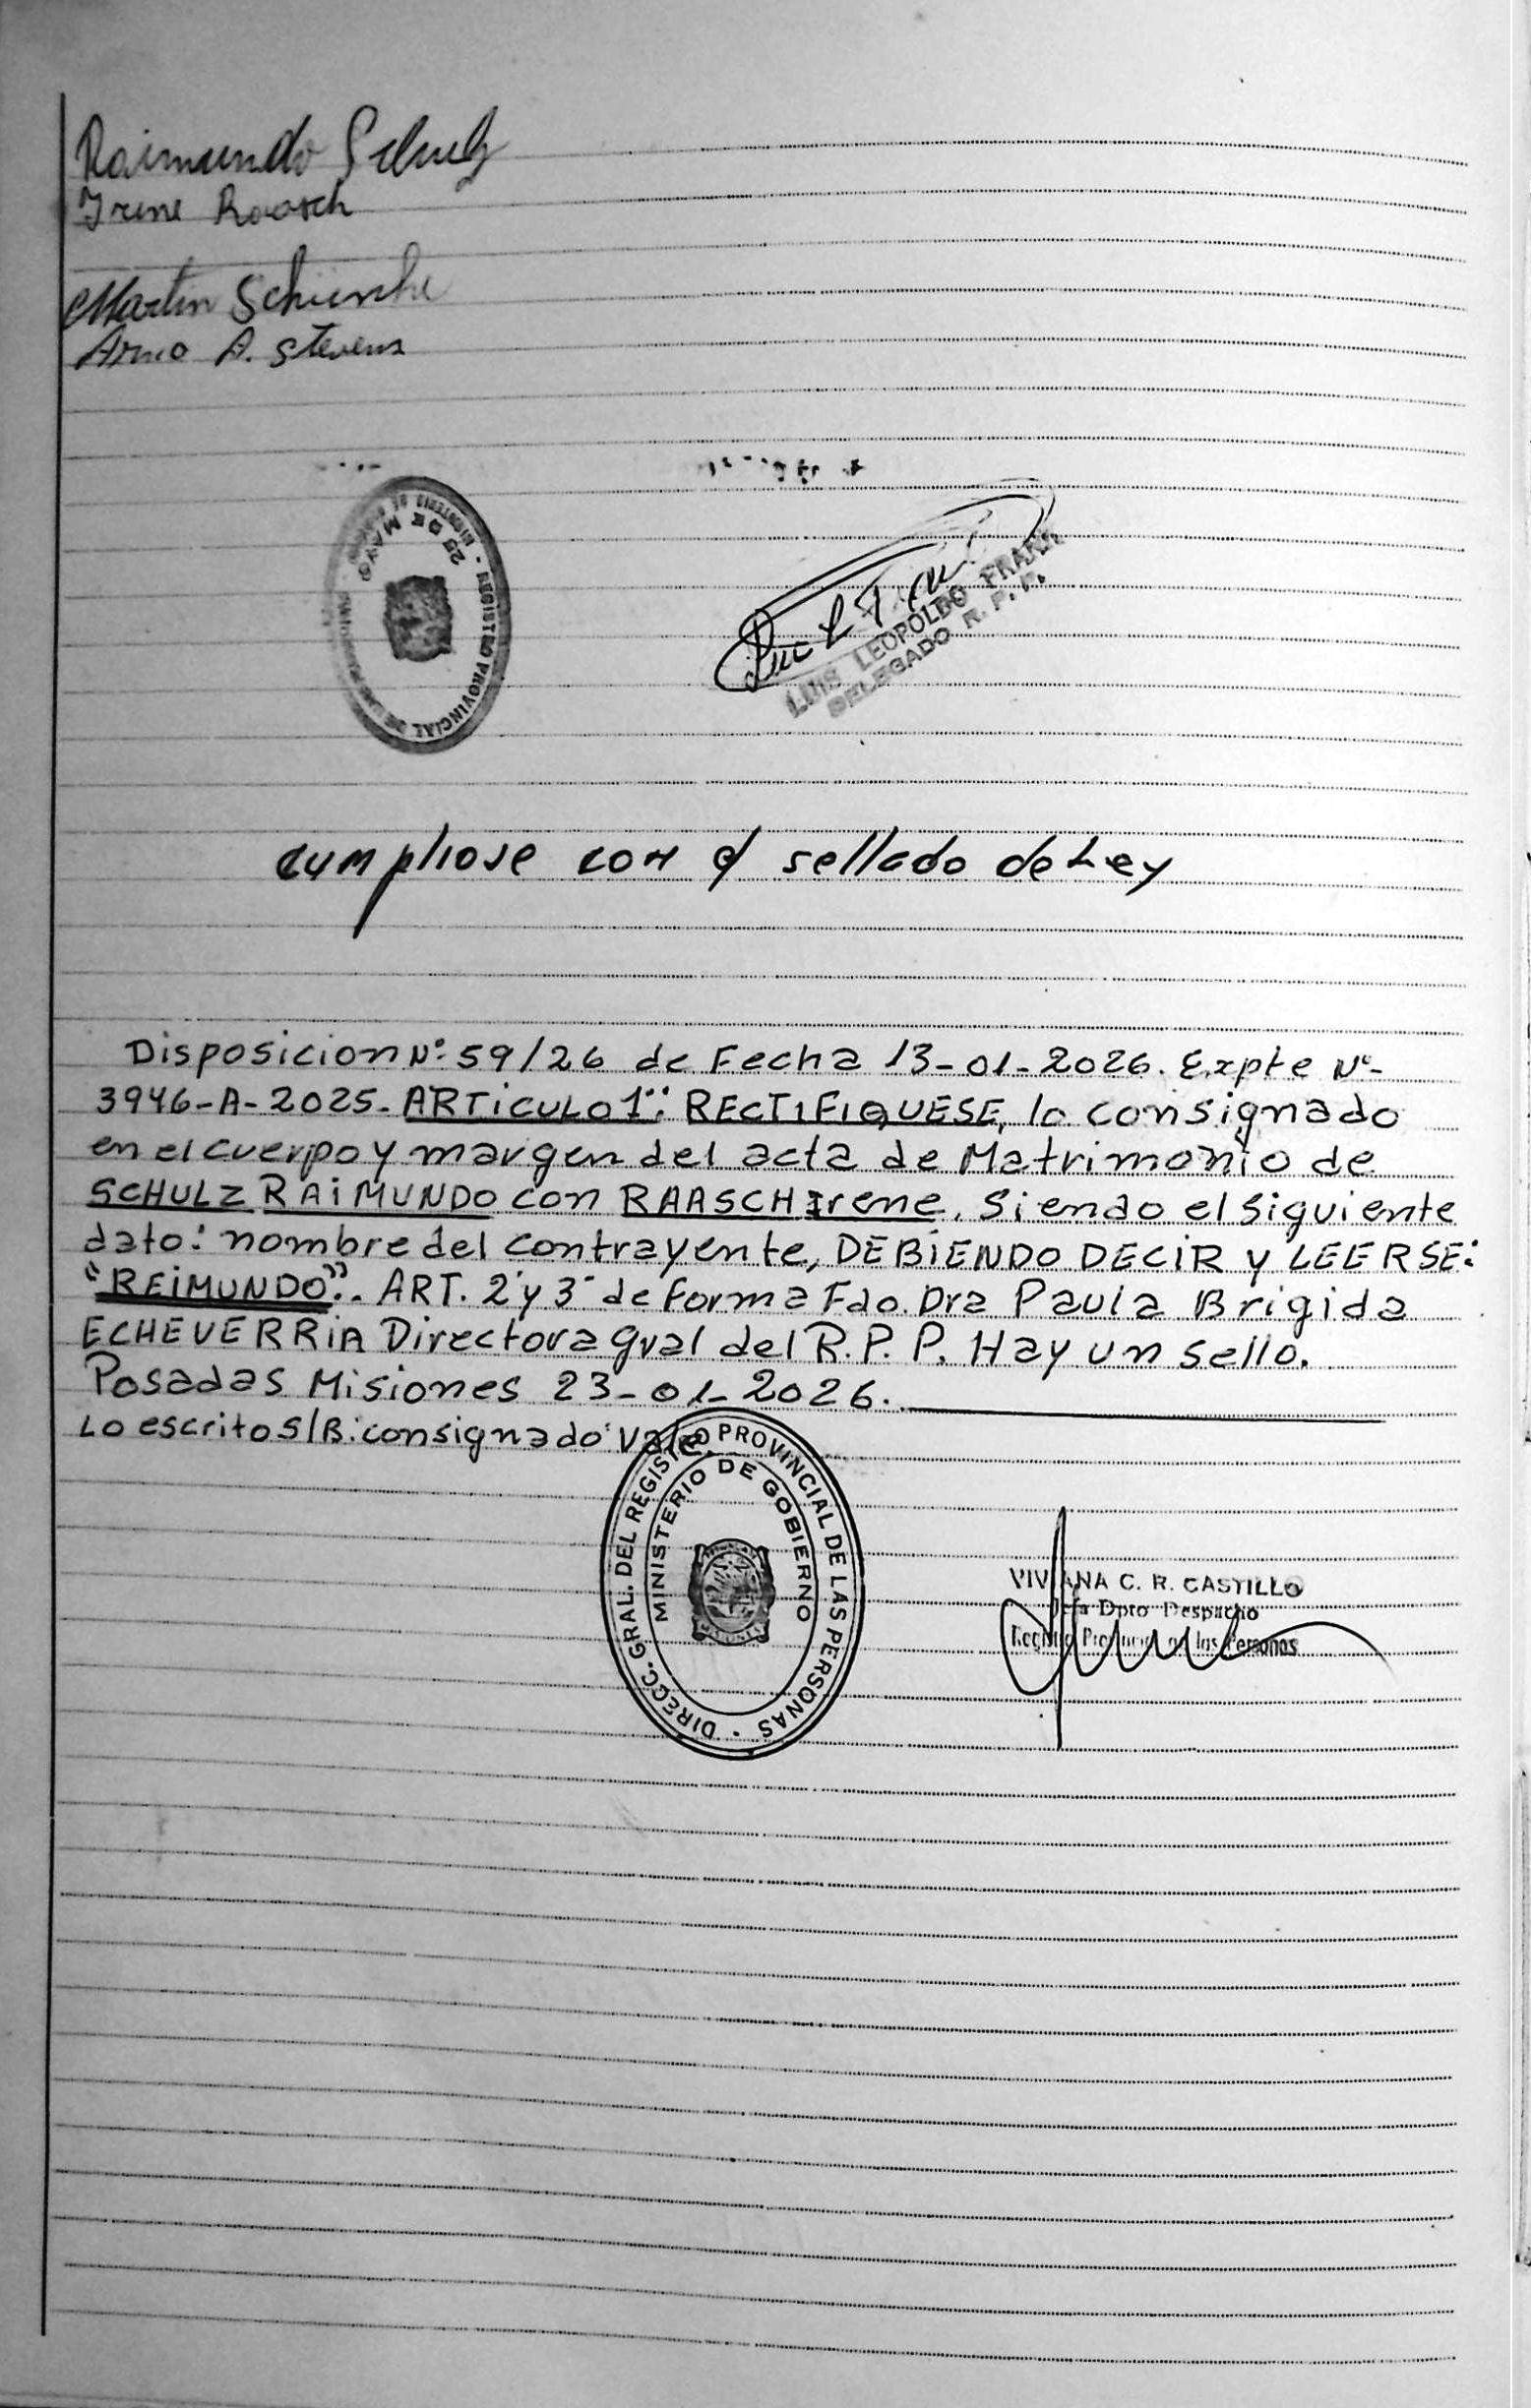 Raimundo Schulz
Irene Raasch
Martin
Arno A. Stevens
MINISTERIO DE
REGISTRO PROVINCIAL DE LAS
25 DE MAYO
LUIS LEOPOLDO FRANK
DELEGADO R. P. P.
cumpliose con el sellado de Ley
Disposicion Nº: 59/26 de Fecha 13-01-2026. Expte Nº-
3946-A-2025- ARTiCULO 1º: RECTIFIQUESE, lo consignado
en el cuerpo y margen del acta de Matrimonio de
SCHULZ RAiMUNDO con RAASCH Irene. Siendo el siguiente
dato: nombre del contrayente, DEBiENDO DECiR y LEERSE:
"REiMUNDO". ART. 2º y 3º de forma Fdo. Dra Paula Brigida
ECHEVERRiA Directora gral del R. P. P. Hay un sello.
Posadas Misiones 23-01-2026.
Lo escrito S/B: consignado Vale.
DIRECC. GRAL. DEL REGISTRO PROVINCIAL DE LAS PERSONAS
MINISTERIO DE GOBIERNO
MISIONES
VIVIANA C. R. CASTILLO
Jefa Dpto Despacho
Registro Provincial de las Personas